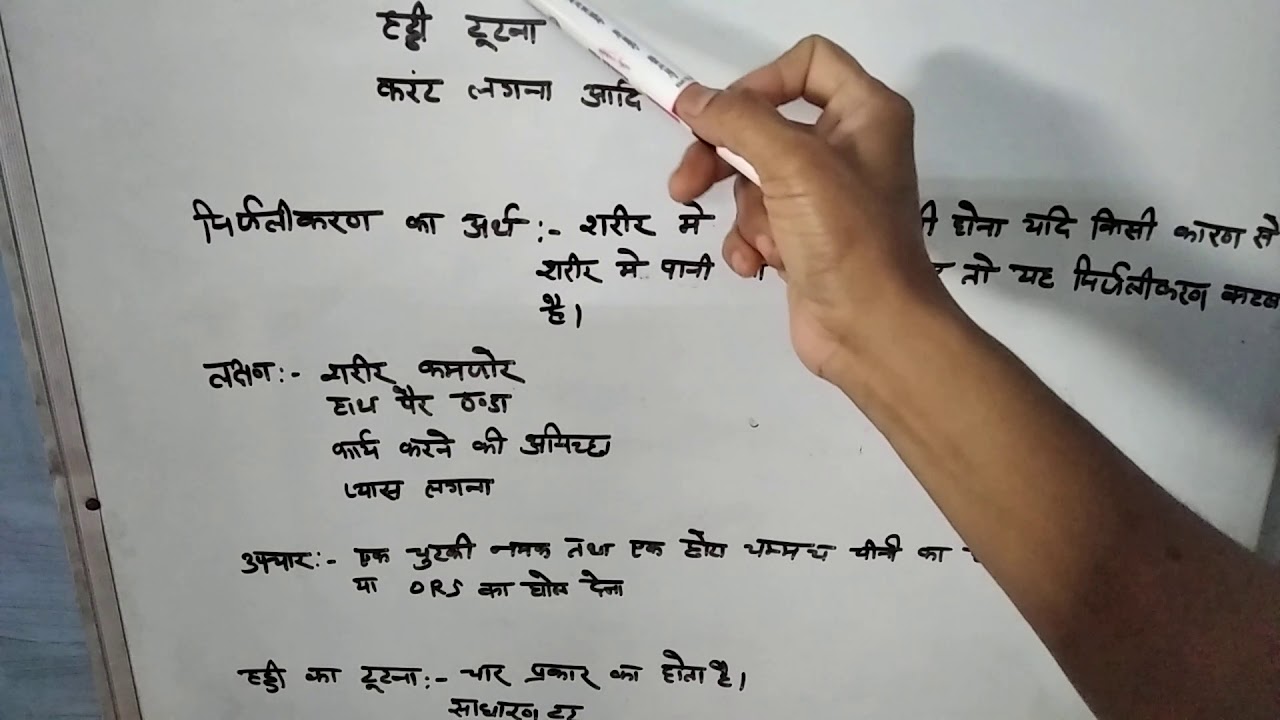 हड्डी टूटना
करंट लगना आदि
निर्जलीकरण का अर्थ :- शरीर मे होना यदि किसी कारण से
शरीर मे पानी तो यह निर्जलीकरण
है।
लक्षण :- शरीर कमजोर
हाथ पैर ठण्डा
कार्य करने की अनिच्छा
प्यास लगना
उपचार :- एक चुटकी नमक तथा एक छोटा चम्मच चीनी का
या ORS का घोल देना
हड्डी का टूटना :- चार प्रकार का होता है।
साधारण